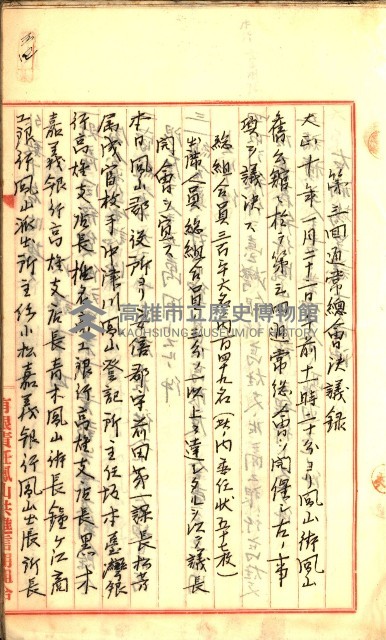 第三回通常總會決議録
大正十年一月二十一日午前十時二十分ヨリ鳳山街鳳山
舊公館ニ於テ第三回通常總會ヲ開催シ左ノ事
項ヲ議決ス
總組合員三百六十名內百四十九名(以內委任狀五十七枚)
出席人員總組合員三分ノ一以上ニ達シタルニ依リ議長
開會ヲ宣ス
本日鳳山郡役所ヨリ信郡守前田第一課長松岡
属成富技手中津川鳳山登記所主任坂本臺灣銀
行高雄支店長椎名商工銀行高雄支店長黒木
嘉義銀行高雄支店長青木鳳山街長鐘ヶ江商
工銀行鳳山派出所主任小松嘉義銀行鳳山出張所長
高雄市立歷史博物館
KAOHSIUNG MUSEUM OF HISTORY
有限責任鳳山共進信用組合